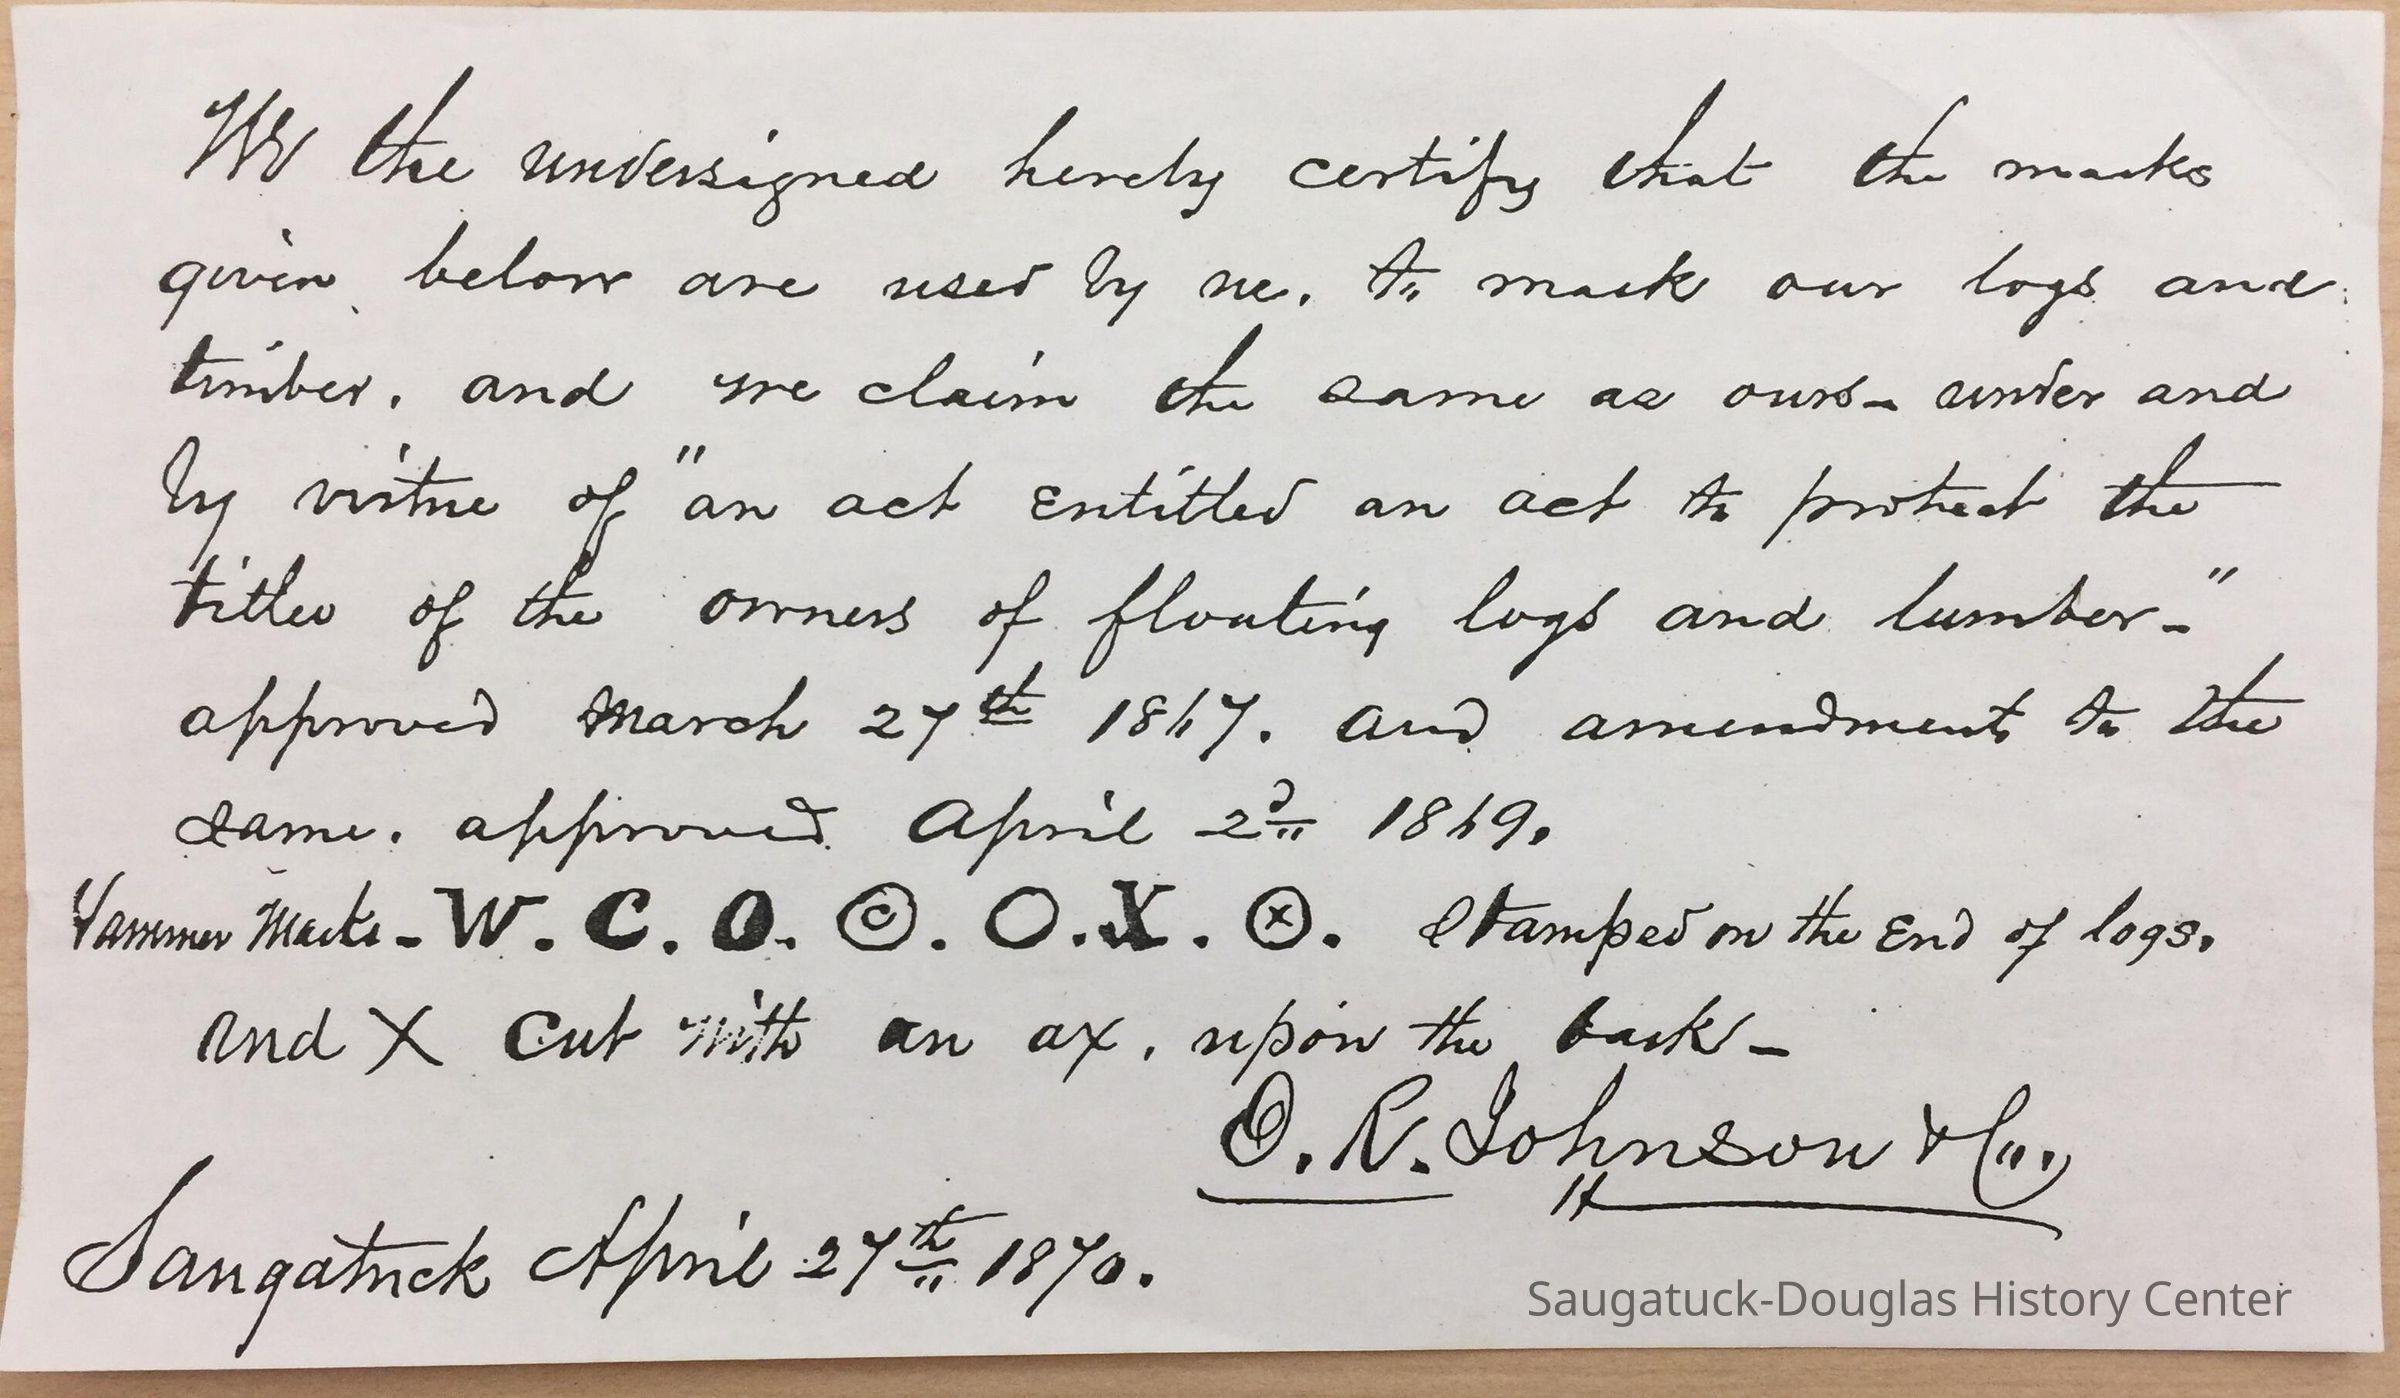 We the undersigned hereby certify that the marks
given below are used by us. to mark our logs and
timber. and we claim the same as ours - under and
by virtue of "an act entitled an act to protect the
titles of the owners of floating logs and lumber-"
approved March 27th 1867. and amendments to the
same. approved April 2d 1869.
Hammer Marks - W. C. O. ©. O. X. ⊗. Stamped on the End of logs.
and X Cut with an ax. upon the bark -
O. R. Johnson & Co.
Saugatuck April 27th 1870.
Saugatuck-Douglas History Center